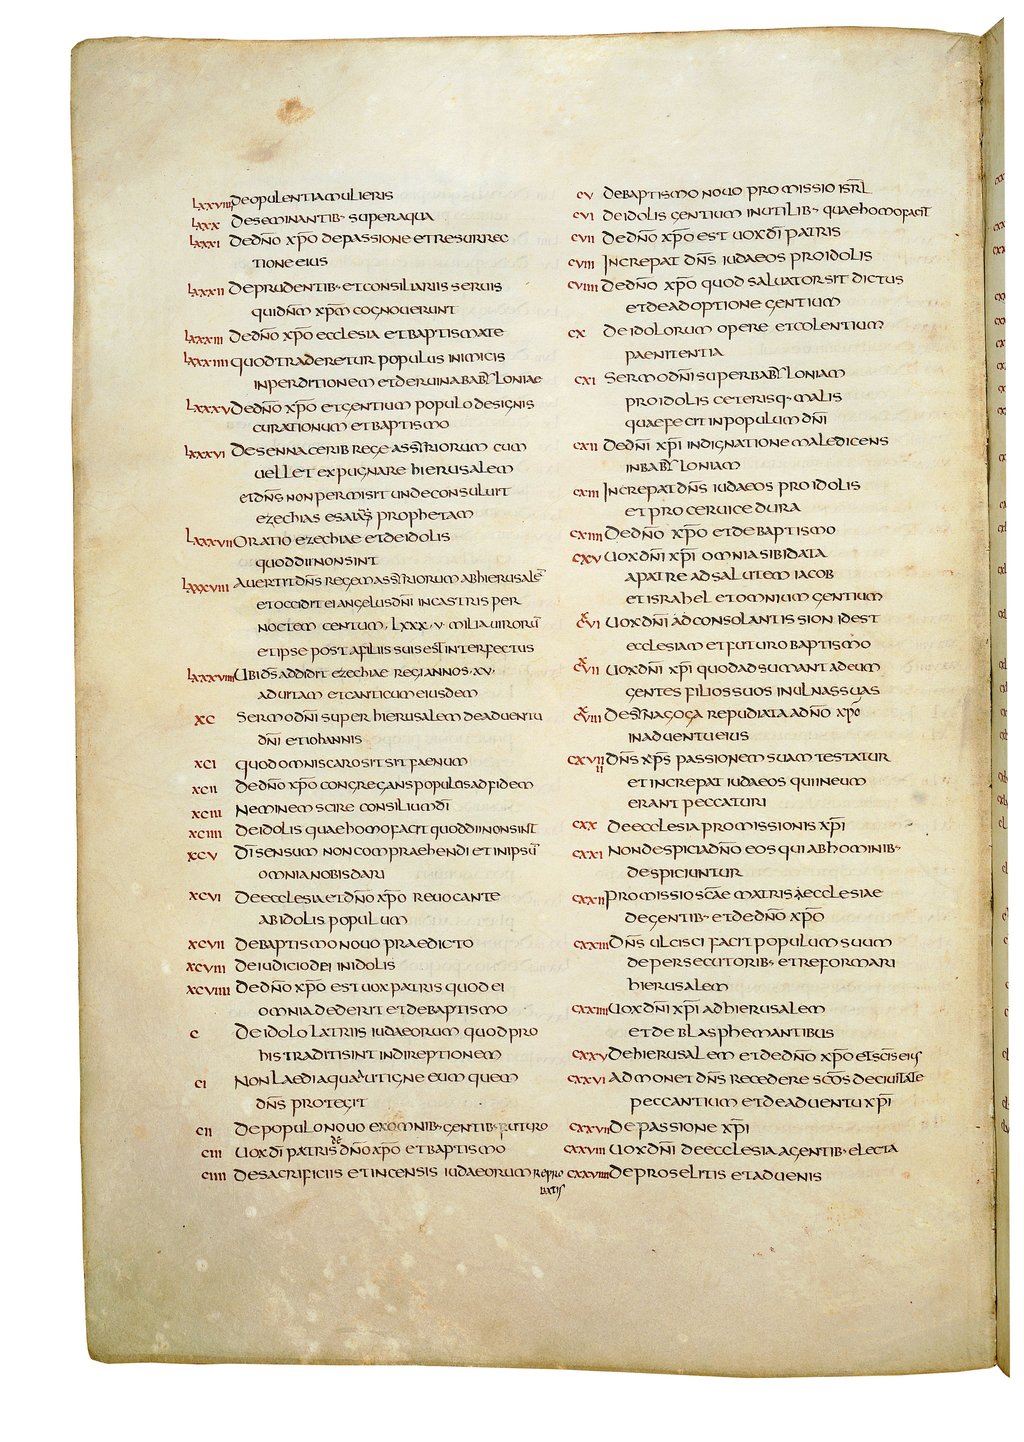 LXXVIIII DE OPULENTIA MULIERIS
LXXX DE SEMINANTIB· SUPER AQUA
LXXXI DE DN̄O XP̄O DE PASSIONE ET RESURREC
TIONE EIUS
LXXXII DE PRUDENTIB· ET CONSILIARIIS SERUIS
QUI DN̄M XP̄M COGNOUERUNT
LXXXIII DE DN̄O XP̄O ECCLESIA ET BAPTISMATE
LXXXIIII QUOD TRADERETUR POPULUS INIMICIS
IN PERDITIONEM ET DE RUINA BABYLONIAE
LXXXV DE DN̄O XP̄O ET GENTIUM POPULO DE SIGNIS
CURATIONUM ET BAPTISMO
LXXXVI DE SENNACERIB REGE ASSYRIORUM CUM
UELLET EXPUGNARE HIERUSALEM
ET DN̄S NON PERMISIT UNDE CONSULUIT
EZECHIAS ESAIAS PROPHETAM
LXXXVII ORATIO EZECHIAE ET DE IDOLIS
QUOD DII NON SINT
LXXXVIII AUERTIT DN̄S REGEM ASSYRIORUM AB HIERUSALĒ
ET OCCIDIT EI ANGELUS DN̄I IN CASTRIS PER
NOCTEM CENTUM· LXXX·V· MILIA UIRORŪ
ET IPSE POST A FILIIS SUIS EST INTERFECTUS
LXXXVIIII UBI DN̄S ADDIDIT EZECHIAE REGI ANNOS·XV·
AD UITAM ET CANTICUM EIUSDEM
XC SERMO DN̄I SUPER HIERUSALEM DE ADUENTU
DN̄I ET IOHANNIS
XCI QUOD OMNIS CARO SIT SIT FAENUM
XCII DE DN̄O XP̄O CONGREGANS POPULOS AD FIDEM
XCIII NEMINEM SCIRE CONSILIUM DĪ
XCIIII DE IDOLIS QUAE HOMO FACIT QUOD DII NON SINT
XCV DĪ SENSUM NON COMPRAEHENDI ET IN IPSŪ
OMNIA NOBIS DARI
XCVI DE ECCLESIA ET DN̄O XP̄O REUOCANTE
AB IDOLIS POPULUM
XCVII DE BAPTISMO NOUO PRAEDICTO
XCVIII DE IUDICIO DEI IN IDOLIS
XCVIIII DE DN̄O XP̄O EST UOX PATRIS QUOD EI
OMNIA DEDERIT ET DE BAPTISMO
C DE IDOLOLATRIIS IUDAEORUM QUOD PRO
HIS TRADITI SINT IN DIREPTIONEM
CI NON LAEDI AQUA UT IGNE EUM QUEM
DN̄S PROTEGIT
CII DE POPULO NOUO EX OMNIB· GENTIB· FUTURO
CIII UOX DĪ PATRIS DE DN̄O XP̄O ET BAPTISMO
CIIII DE SACRIFICIIS ET INCENSIS IUDAEORUM REPRO
BATIS
CV DE BAPTISMO NOUO PROMISSIO ISRL̄
CVI DE IDOLIS GENTIUM INUTILIB· QUAE HOMO FACIT
CVII DE DN̄O XP̄O EST UOX DĪ PATRIS
CVIII INCREPAT DN̄S IUDAEOS PRO IDOLIS
CVIIII DE DN̄O XP̄O QUOD SALUATOR SIT DICTUS
ET DE ADOPTIONE GENTIUM
CX DE IDOLORUM OPERE ET COLENTIUM
PAENITENTIA
CXI SERMO DN̄I SUPER BABYLONIAM
PRO IDOLIS CETERISQ· MALIS
QUAE FECIT IN POPULUM DN̄I
CXII DE DN̄I XP̄I INDIGNATIONE MALEDICENS
IN BABYLONIAM
CXIII INCREPAT DN̄S IUDAEOS PRO IDOLIS
ET PRO CERUICE DURA
CXIIII DE DN̄O XP̄O ET DE BAPTISMO
CXV UOX DN̄I XP̄I OMNIA SIBI DATA
A PATRE AD SALUTEM IACOB
ET ISRAHEL ET OMNIUM GENTIUM
CXVI UOX DN̄I AD CONSOLANTIS SION ID EST
ECCLESIAM ET FUTURO BAPTISMO
CXVII UOX DN̄I XP̄I QUOD ADSUMANT AD EUM
GENTES FILIOS SUOS IN ULNAS SUAS
CXVIII DE SYNAGOGA REPUDIATA A DN̄O XP̄O
IN ADUENTU EIUS
CXVIIII DN̄S XP̄S PASSIONEM SUAM TESTATUR
ET INCREPAT IUDAEOS QUI IN EUM
ERANT PECCATURI
CXX DE ECCLESIA PROMISSIONIS XP̄I
CXXI NON DESPICI A DN̄O EOS QUI AB HOMINIB·
DESPICIUNTUR
CXXII PROMISSIO SC̄AE MATRIS ECCLESIAE
DE GENTIB· ET DE DN̄O XP̄O
CXXIII DN̄S ULCISCI FACIT POPULUM SUUM
DE PERSECUTORIB· ET REFORMARI
HIERUSALEM
CXXIIII UOX DN̄I XP̄I AD HIERUSALEM
ET DE BLASPHEMANTIBUS
CXXV DE HIERUSALEM ET DE DN̄O XP̄O ET SC̄IS EIUS
CXXVI ADMONET DN̄S RECEDERE SC̄OS DE CIUITATE
PECCANTIUM ET DE ADUENTU XP̄I
CXXVII DE PASSIONE XP̄I
CXXVIII UOX DN̄I DE ECCLESIA A GENTIB· ELECTA
CXXVIIII DE PROSELITIS ET ADUENIS